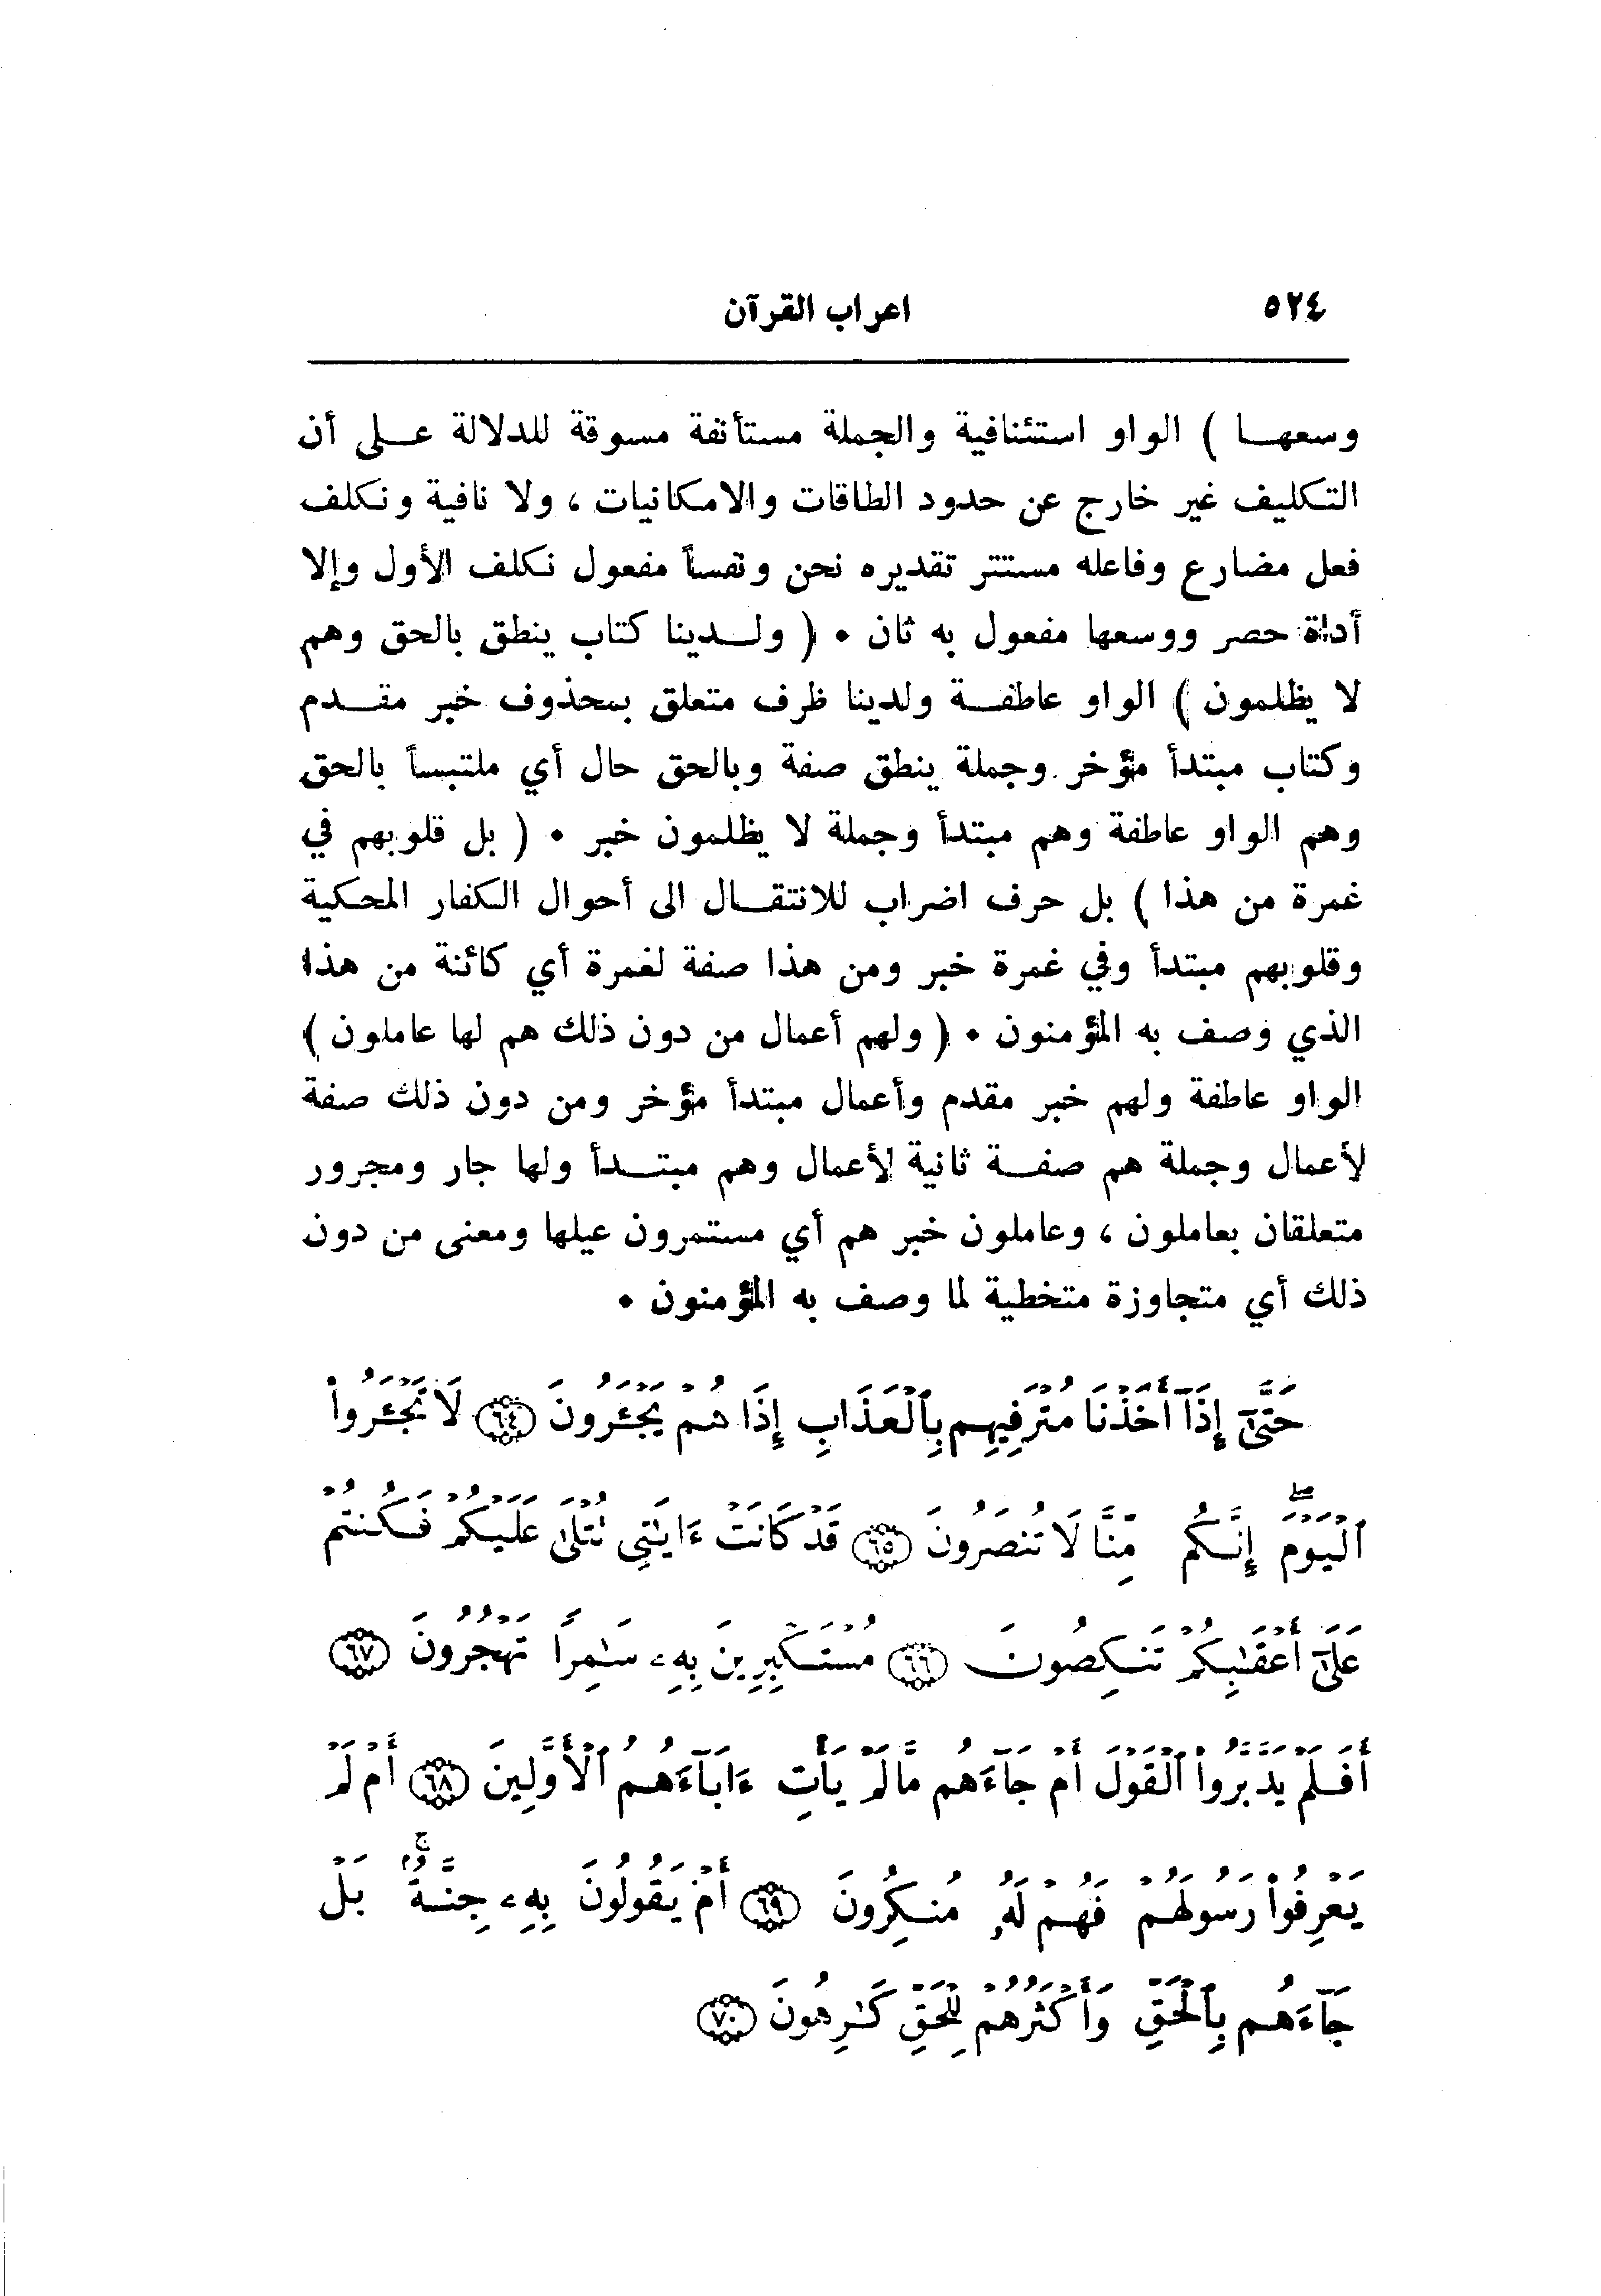 ٥٢٤ اعراب القرآن
وسعهـــا ) الواو استئنافية والجملة مستأنفة مسوقة للدلالة عـــلى أن
التكليف غير خارج عن حدود الطاقات والامكانيات ، ولا نافية ونكلف
فعل مضارع وفاعله مستتر تقديره نحن ونفساً مفعول نكلف الأول وإلا
أداة حصر ووسعها مفعول به ثان • ( ولــدينا كتاب ينطق بالحق وهم
لا يظلمون ) الواو عاطفــة ولدينا ظرف متعلق بمحذوف خبر مقــدم
وكتاب مبتدأ مؤخر وجملة ينطق صفة وبالحق حال أي ملتبساً بالحق
وهم الواو عاطفة وهم مبتدأ وجملة لا يظلمون خبر • ( بل قلوبهم في
غمرة من هذا ) بل حرف اضراب للانتقــال الى أحوال الكفار المحكية
وقلوبهم مبتدأ وفي غمرة خبر ومن هذا صفة لغمرة أي كائنة من هذا
الذي وصف به المؤمنون • ( ولهم أعمال من دون ذلك هم لها عاملون )
الواو عاطفة ولهم خبر مقدم وأعمال مبتدأ مؤخر ومن دون ذلك صفة
لأعمال وجملة هم صفــة ثانية لأعمال وهم مبتــدأ ولها جار ومجرور
متعلقان بعاملون ، وعاملون خبر هم أي مستمرون عيلها ومعنى من دون
ذلك أي متجاوزة متخطية لما وصف به المؤمنون •
حَتَّىٰٓ إِذَآ أَخَذْنَا مُتْرَفِيهِم بِٱلْعَذَابِ إِذَا هُمْ يَجْـَٔرُونَ ٦٤ لَا تَجْـَٔرُوا۟
ٱلْيَوْمَ ۖ إِنَّكُم مِّنَّا لَا تُنصَرُونَ ٦٥ قَدْ كَانَتْ ءَايَـٰتِى تُتْلَىٰ عَلَيْكُمْ فَكُنتُمْ
عَلَىٰٓ أَعْقَـٰبِكُمْ تَنكِصُونَ ٦٦ مُسْتَكْبِرِينَ بِهِۦ سَـٰمِرًا تَهْجُرُونَ ٦٧
أَفَلَمْ يَدَّبَّرُوا۟ ٱلْقَوْلَ أَمْ جَآءَهُم مَّا لَمْ يَأْتِ ءَابَآءَهُمُ ٱلْأَوَّلِينَ ٦٨ أَمْ لَمْ
يَعْرِفُوا۟ رَسُولَهُمْ فَهُمْ لَهُۥ مُنكِرُونَ ٦٩ أَمْ يَقُولُونَ بِهِۦ جِنَّةٌۢ ۚ بَلْ
جَآءَهُم بِٱلْحَقِّ وَأَكْثَرُهُمْ لِلْحَقِّ كَـٰرِهُونَ ٧٠